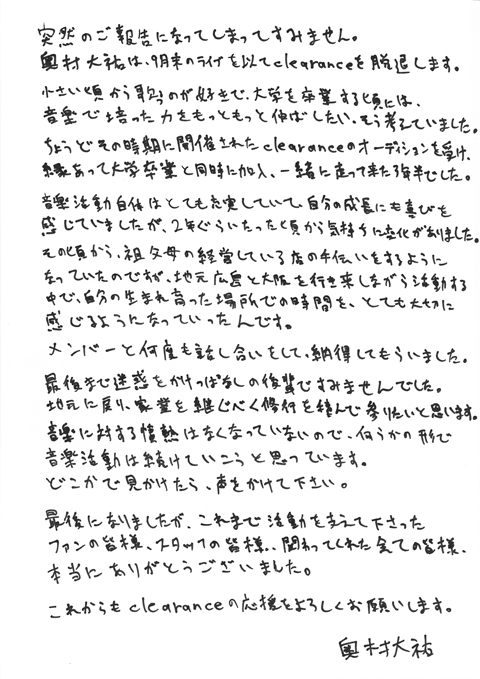 突然のご報告になってしまってすみません。
奥村大祐は、9月末のライブを以てclearanceを脱退します。
小さい頃から歌うのが好きで、大学を卒業する頃には、
音楽で培った力をもっともっと伸ばしたい、そう考えていました。
ちょうどその時期に開催されたclearanceのオーディションを受け、
縁あって大学卒業と同時に加入、一緒に走って来た3年半でした。
音楽活動自体はとても充実していて、自分の成長にも喜びを
感じていましたが、2年ぐらいたった頃から気持ちに変化がありました。
その頃から、祖父母の経営している店の手伝いをするように
なっていたのですが、地元広島と大阪を行き来しながら活動する
中で、自分の生まれ育った場所での時間を、とても大切に
感じるようになっていったんです。
メンバーと何度も話し合いをして、納得してもらいました。
最後まで迷惑をかけっぱなしの後輩ですみませんでした。
地元に戻り、家業を継ぐべく修行を積んで参りたいと思います。
音楽に対する情熱はなくなっていないので、何らかの形で
音楽活動は続けていこうと思っています。
どこかで見かけたら、声をかけて下さい。
最後になりましたが、これまで活動を支えて下さった
ファンの皆様、スタッフの皆様、関わってくれた全ての皆様、
本当にありがとうございました。
これからもclearanceの応援をよろしくお願いします。
奥村大祐